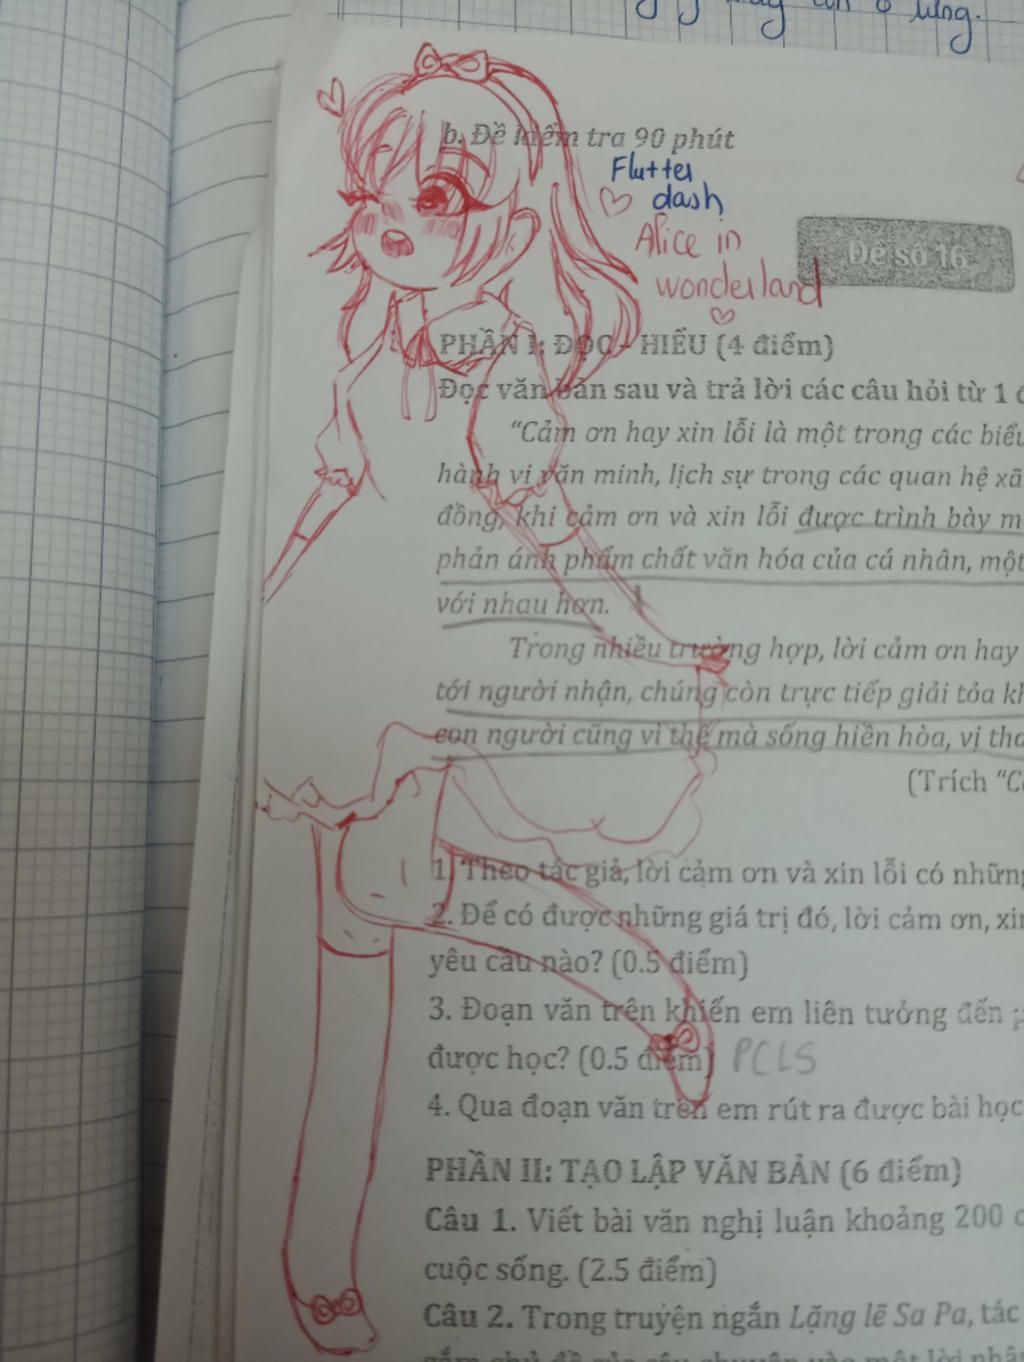 ủng.
b. Đề kiểm tra 90 phút
Flutter
dash
Alice in
wonderland
Đề số 16
PHẦN I: ĐỌC - HIỂU (4 điểm)
Đọc văn bản sau và trả lời các câu hỏi từ 1
"Cảm ơn hay xin lỗi là một trong các biểu
hành vi văn minh, lịch sự trong các quan hệ xã
đồng, khi cảm ơn và xin lỗi được trình bày
phản ánh phẩm chất văn hóa của cá nhân, một
với nhau hơn.
Trong nhiều trường hợp, lời cảm ơn hay
tới người nhận, chúng còn trực tiếp giải tỏa
con người cũng vì thế mà sống hiền hòa, vị tha
(Trích
1. Theo tác giả, lời cảm ơn và xin lỗi có những
2. Để có được những giá trị đó, lời cảm ơn, xin
yêu cầu nào? (0.5 điểm)
3. Đoạn văn trên khiến em liên tưởng đến
được học? (0.5 điểm) PCLS
4. Qua đoạn văn trên em rút ra được bài học
PHẦN II: TẠO LẬP VĂN BẢN (6 điểm)
Câu 1. Viết bài văn nghị luận khoảng 200
cuộc sống. (2.5 điểm)
Câu 2. Trong truyện ngắn Lặng lẽ Sa Pa, tác